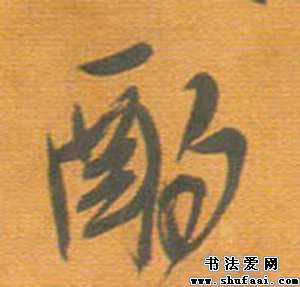 酌
书法爱网
www.shufaai.com